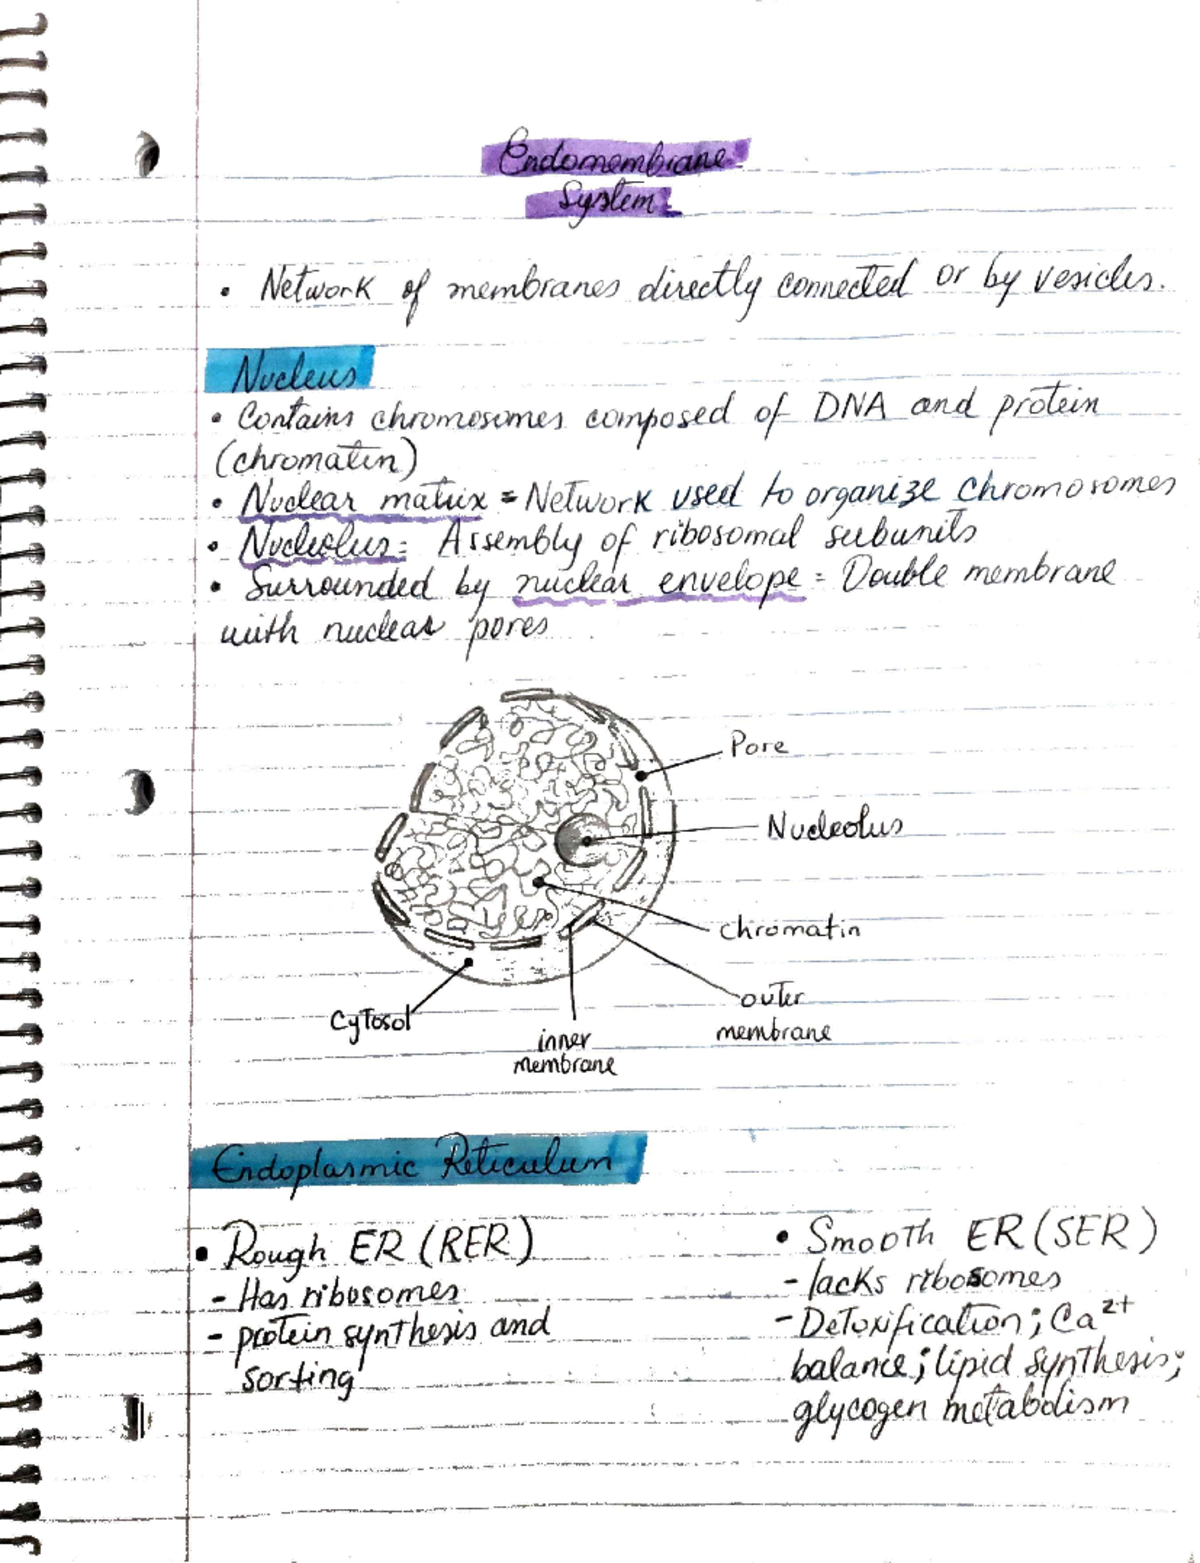 Endomembrane
System
• Network of membranes directly connected or by vesicles.
Nucleus
• Contains chromosomes composed of DNA and protein
(chromatin)
• Nuclear matrix = Network used to organize chromosomes
• Nucleolus = Assembly of ribosomal subunits
• Surrounded by nuclear envelope = Double membrane
with nuclear pores
Pore
Nucleolus
chromatin
outer
membrane
cytosol
inner
membrane
Endoplasmic Reticulum
• Rough ER (RER)
- Has ribosomes
- protein synthesis and
sorting
• Smooth ER (SER)
- lacks ribosomes
- Detoxification; Ca²⁺
balance; lipid synthesis;
glycogen metabolism